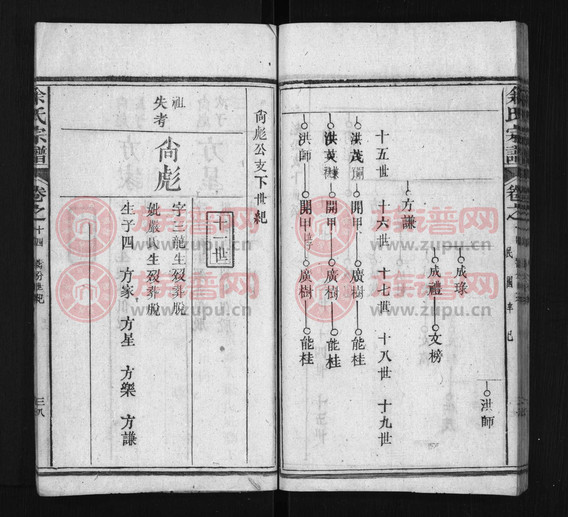 余氏宗譜
卷之
民國辛巳
洪師
成琭
成禮 文榜
方謙
十五世 十六世 十七世 十八世 十九世
洪茂 開甲 廣樹 能桂
洪英 開甲 廣樹 能桂
洪師 開甲 廣樹 能桂
尙彪公支下世紀
十一世
祖失考
尙彪
字三龍生歿葬脫
妣嚴氏生歿葬脫
生子四 方家 方星 方樂 方謙
余氏宗譜
卷之十四
三八
尋根 族譜网
www.zupu.cn